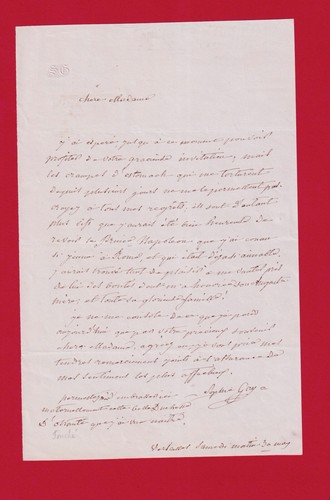 chère Madame
j'ai espéré jusqu'à ce moment pouvoir
profiter de votre gracieuse invitation, mais
les crampes d'estomac qui me torturent
depuis plusieurs jours ne me le permettent pas.
croyez à tous mes regrets, ils sont d'autant
plus vifs que j'aurais été bien heureuse de
revoir le Prince Napoléon que j'ai connu
si jeune à Rome, et qui était déjà si aimable.
j'aurais trouvé tant de plaisir à me
des bontés dont m'a honorée son Auguste
mère, et toute sa glorieuse famille!
je ne me console de ce que je perds
aujourd'hui que par votre précieux souvenir
chère Madame. agréez en pour prix mes
tendres remerciements joints à l'assurance de
mes sentiments les plus affectueux.
Sophie Gay
permettez
maternellement cette belle
Versailles samedi matin 30 may